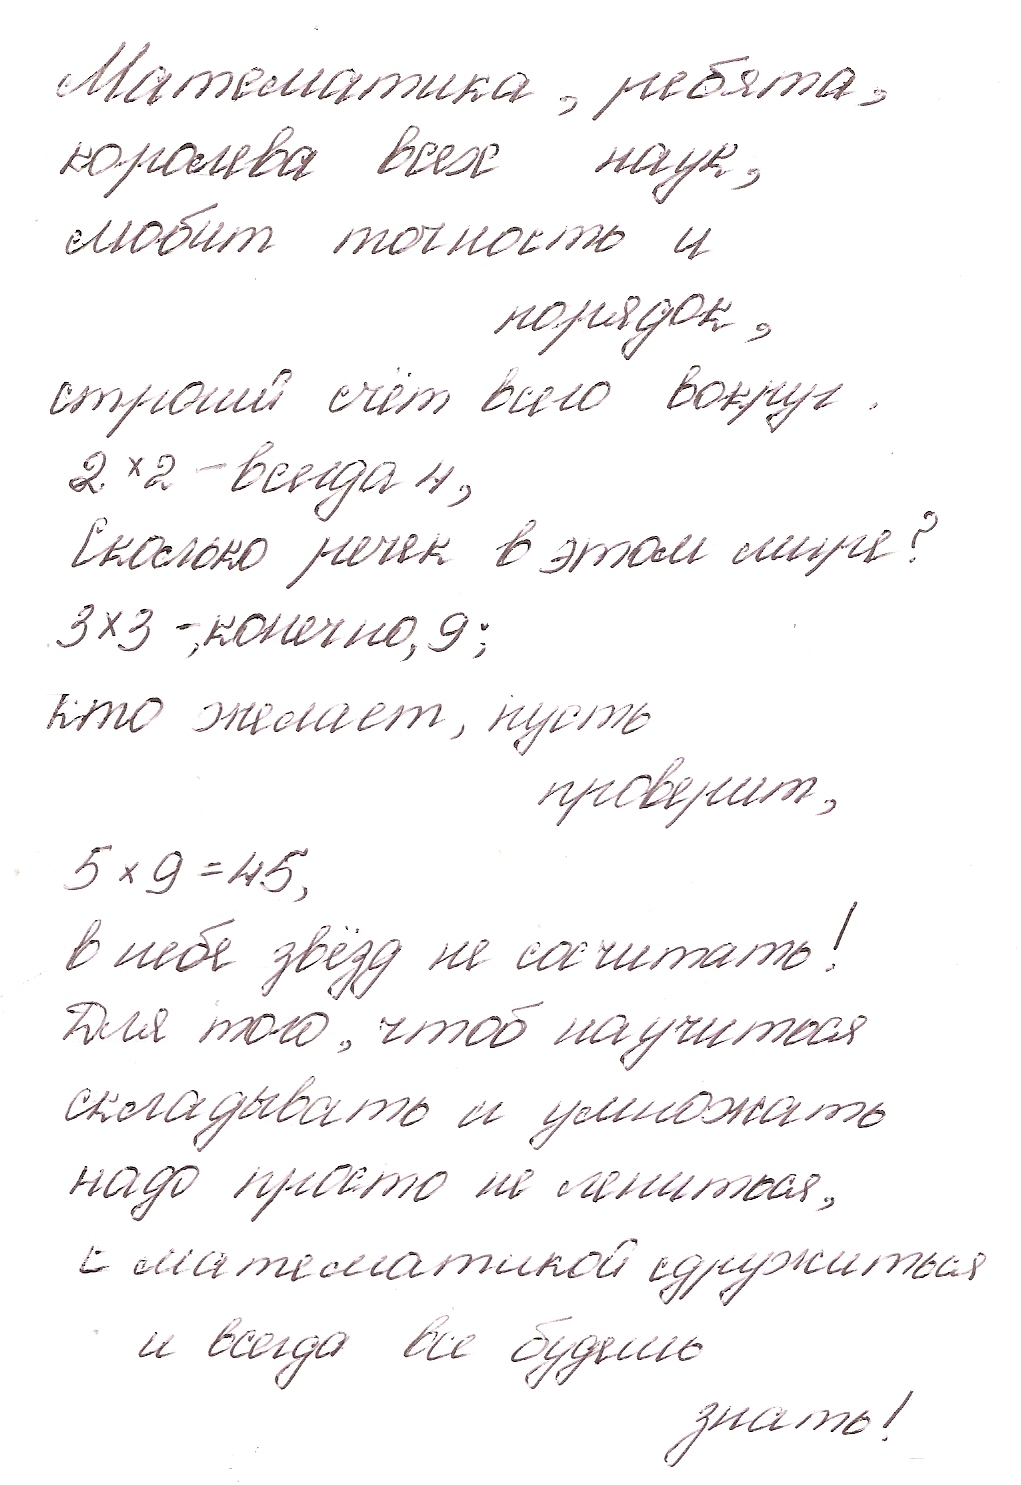 Математика, ребята,
королева всех наук,
любит точность и
порядок,
строгий счёт всего вокруг.
2 x 2 - всегда 4,
Сколько речек в этом мире?
3 x 3 -, конечно, 9;
кто желает, пусть
проверит,
5 x 9 = 45,
в небе звёзд не сосчитать!
Для того, чтоб научиться
складывать и умножать
надо просто не лениться,
с математикой сдружиться
и всегда все будешь
знать!